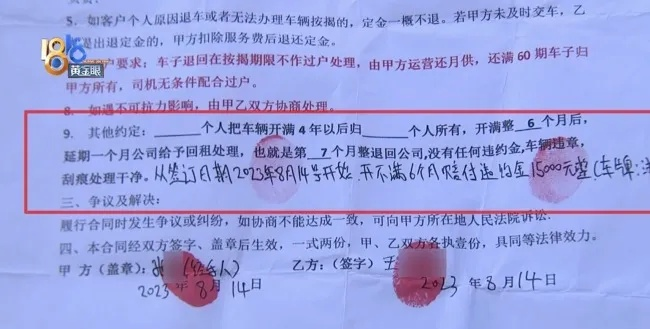 1818
黄金眼
5. 如客户个人原因退车或者无法办理车辆按揭的，定金一概不退。若甲方未及时交车，乙
是出退定金的，甲方扣除服务费后退还定金。
户要求：车子退回在按揭期限不作过户处理，由甲方运营还月供，还满 60 期车子归
甲方所有，司机无条件配合过户。
8. 如遇不可抗力影响，由甲乙双方协商处理。
9. 其他约定：______个人把车辆开满 4 年以后归______个人所有，开满整 6 个月后，
延期一个月公司给予回租处理，也就是第 7 个月整退回公司,没有任何违约金,车辆违章,
刮痕处理干净。从签订日期2023年8月14号开始,开不满6个月赔付违约金15000元整(车牌:
三、争议及解决：
履行合同时发生争议或纠纷，如协商不能达成一致，可向甲方所在地人民法院诉讼.
四、本合同经双方签字、盖章后生效，一式两份，甲、乙双方各执壹份，具同等法律效力。
甲 方（盖章）：张 乙方：（签字）王
2023 年 8 月 14 日 2023 年 8 月 14 日